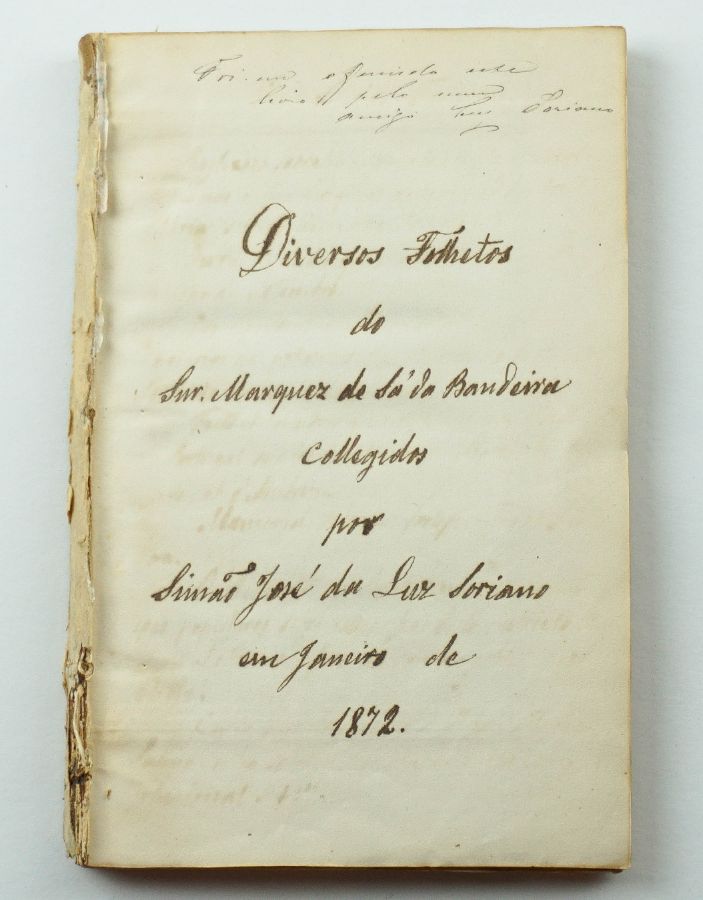 Foi-me offerecido este
livro pelo meu
amigo Luz Soriano
Diversos Folhetos
do
Snr. Marquez de Sá da Bandeira
Collegidos
por
Simão José da Luz Soriano
em Janeiro de
1872.